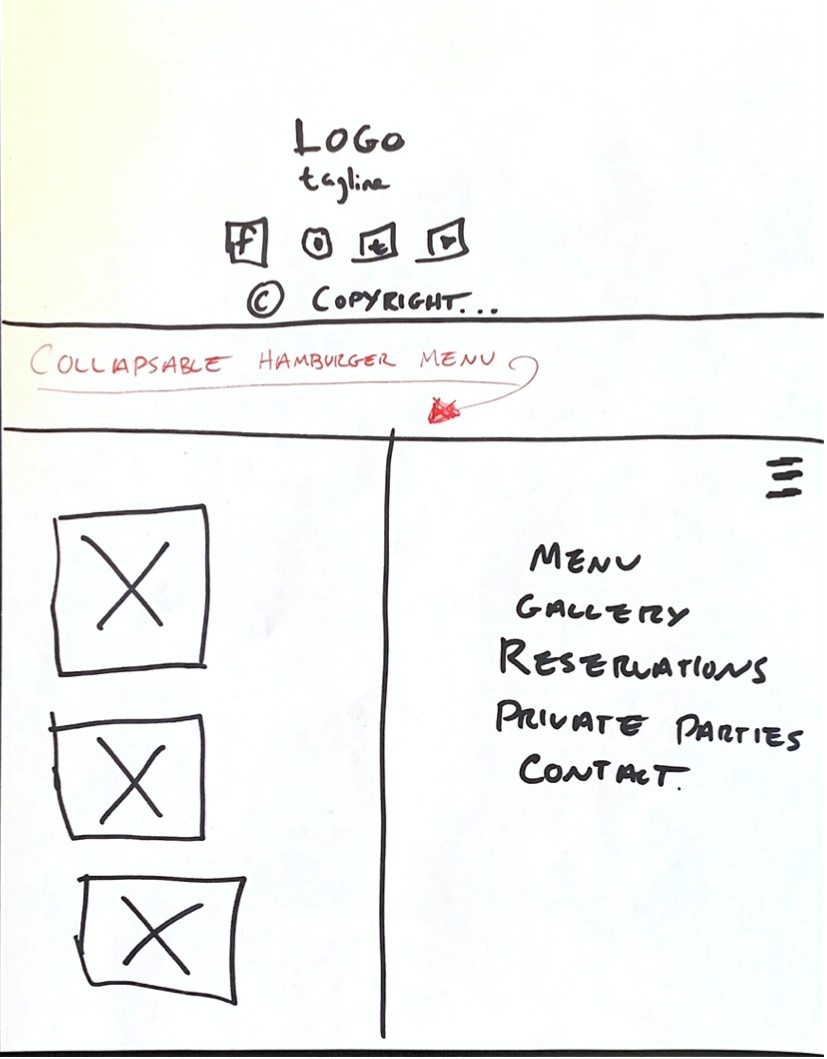 LOGO
tagline
f t
© COPYRIGHT...
COLLAPSABLE HAMBURGER MENU
MENU
GALLERY
RESERVATIONS
PRIVATE PARTIES
CONTACT.